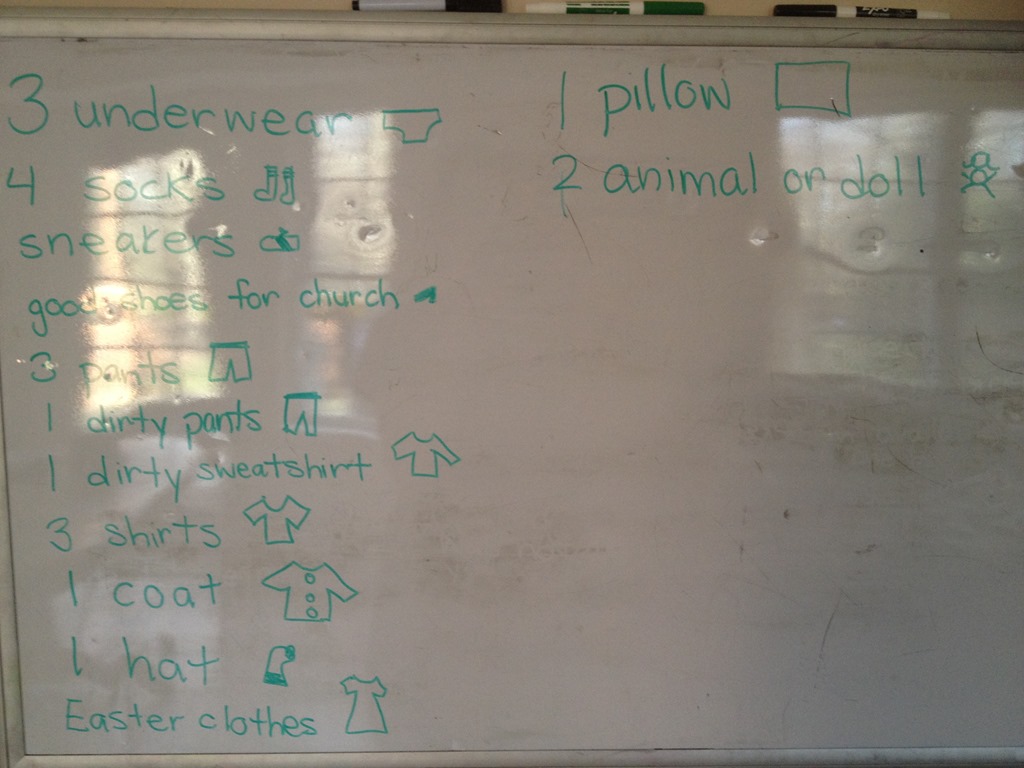 3 underwear
4 socks
sneakers
good shoes for church
3 pants
1 dirty pants
1 dirty sweatshirt
3 shirts
1 coat
1 hat
Easter clothes
1 pillow
2 animal or doll